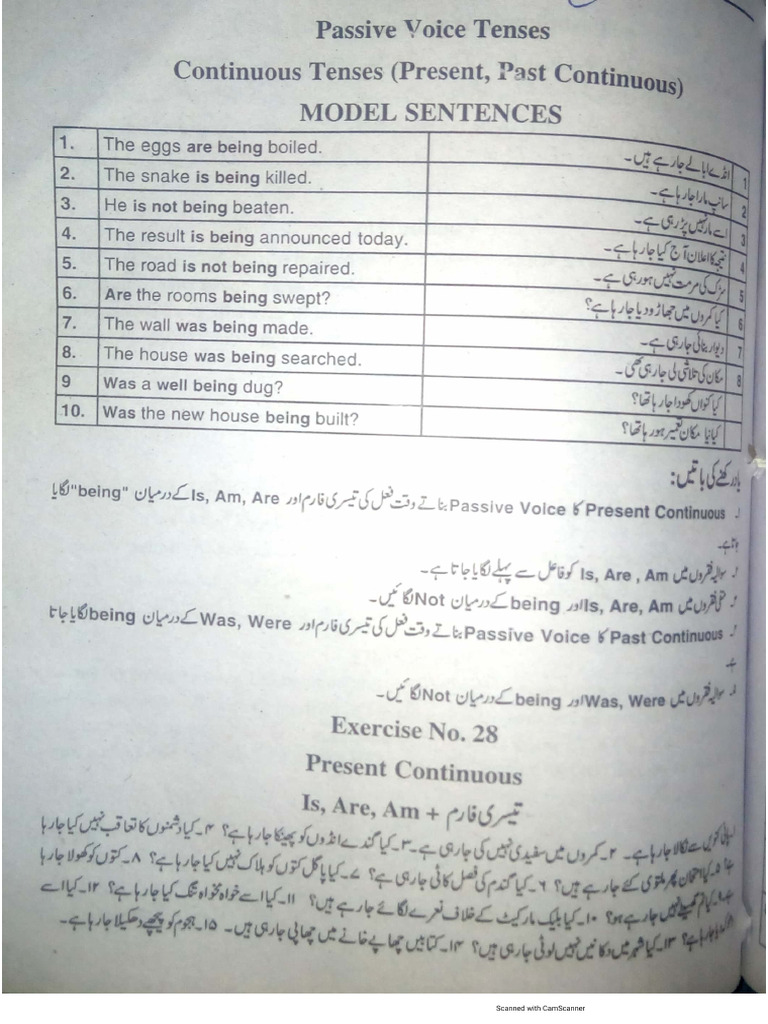 Passive Voice Tenses
Continuous Tenses (Present, Past Continuous)
MODEL SENTENCES
1. The eggs are being boiled. انڈے ابالے جا رہے ہیں۔ 1
2. The snake is being killed. سانپ مارا جا رہا ہے۔ 2
3. He is not being beaten. اسے مار نہیں پڑ رہی ہے۔ 3
4. The result is being announced today. نتیجہ کا اعلان آج کیا جا رہا ہے۔ 4
5. The road is not being repaired. سڑک کی مرمت نہیں ہو رہی ہے۔ 5
6. Are the rooms being swept? کیا کمروں میں جھاڑو دیا جا رہا ہے؟ 6
7. The wall was being made. دیوار بنائی جا رہی ہے۔ 7
8. The house was being searched. مکان کی تلاشی لی جا رہی تھی۔ 8
9 Was a well being dug? کیا کنواں کھودا جا رہا تھا؟
10. Was the new house being built? کیا نیا مکان تعمیر ہو رہا تھا؟
یاد رکھنے کی باتیں:
Present Continuous کا Passive Voice بناتے وقت فعل کی تیسری فارم اور Is, Am, Are کے درمیان "being" لگایا
جاتا ہے۔
سوالیہ فقروں میں Is, Are , Am کو فاعل سے پہلے لگایا جاتا ہے۔
منفی فقروں میں Is, Are, Am اور being کے درمیان Not لگائیں۔
Past Continuous کا Passive Voice بناتے وقت فعل کی تیسری فارم اور Was, Were کے درمیان being لگایا جاتا
ہے
سوالیہ فقروں میں Was, Were اور being کے درمیان Not لگائیں۔
Exercise No. 28
Present Continuous
Is, Are, Am + تیسری فارم
۱۔ پانی کنویں سے نکالا جا رہا ہے۔ ۲۔ کمروں میں سفیدی نہیں کی جا رہی ہے۔ ۳۔ کیا گندے انڈوں کو پھینکا جا رہا ہے؟ ۴۔ کیا دشمنوں کا تعاقب نہیں کیا جا رہا
ہے؟ ۵۔ کیا امتحان پھر ملتوی کئے جا رہے ہیں؟ ۶۔ کیا گندم کی فصل کاٹی جا رہی ہے؟ ۷۔ کیا پاگل کتوں کو ہلاک نہیں کیا جا رہا ہے؟ ۸۔ کتوں کو کھولا جا رہا
ہے۔ ۹۔ کیا تم نہیں جا رہے ہو؟ ۱۰۔ کیا بلیک مارکیٹ کے خلاف نعرے لگائے جا رہے ہیں؟ ۱۱۔ کیا اسے خواہ مخواہ تنگ کیا جا رہا ہے؟ ۱۲۔ کیا اسے
جا رہا ہے؟ ۱۳۔ کیا شہر میں دکانیں نہیں لوٹی جا رہی ہیں؟ ۱۴۔ کتابیں چھاپے خانے میں چھاپی جا رہی ہیں۔ ۱۵۔ ہجوم کو پیچھے دھکیلا جا رہا ہے۔
Scanned with CamScanner